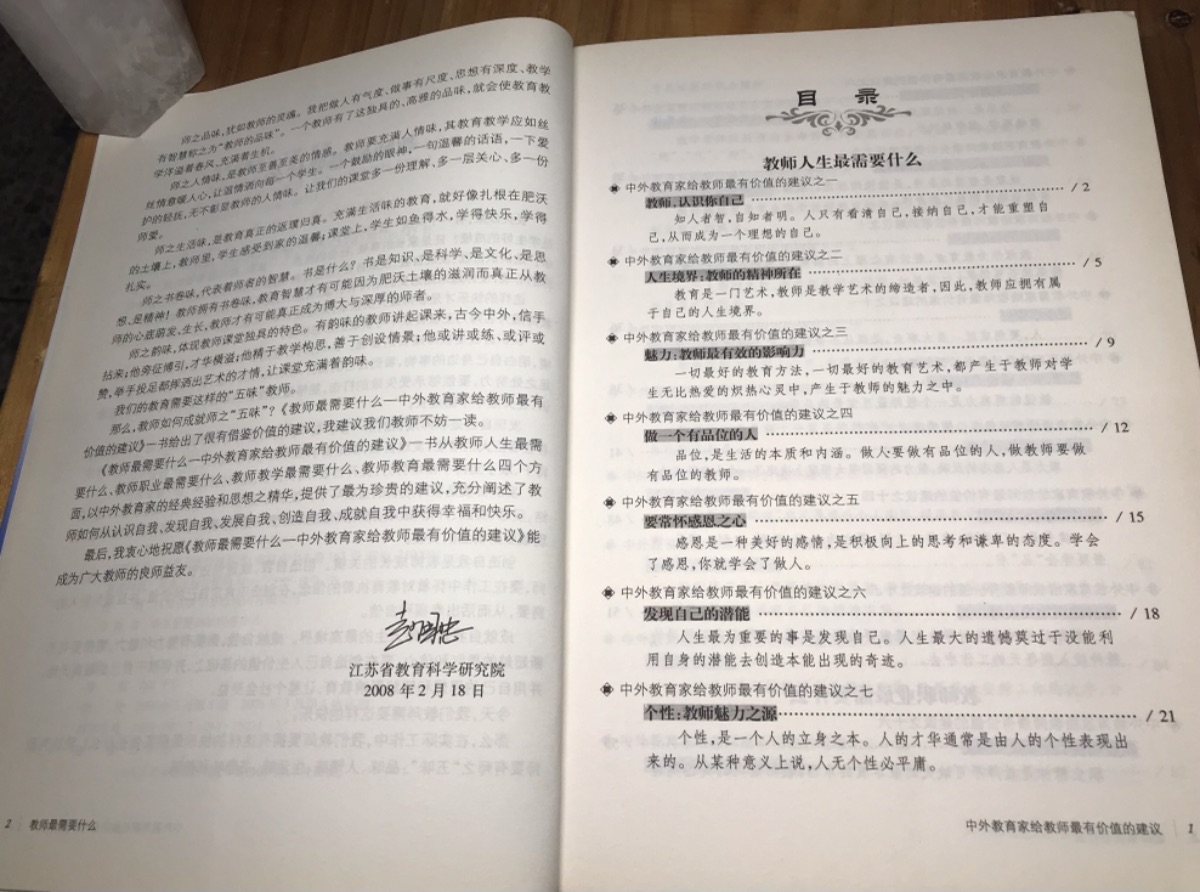 师之品味,犹如教师的灵魂。我把做人有气度、做事有尺度、思想有深度、教学
有智慧称之为“教师的品味”。一个教师有了这独具的、高雅的品味,就会使教育教
学洋溢着春风、充满着生机。
师之人情味,是教师至善至美的情感。教师要充满人情味,其教育教学应如丝
丝情意暖人心,让温情洒向每一个学生。一个鼓励的眼神,一句温馨的话语,一下爱
护的轻抚,无不彰显教师的人情味。让我们的课堂多一份理解、多一层关心、多一份
师爱。
师之生活味,是教育真正的返理归真。充满生活味的教育,就好像扎根在肥沃
的土壤上,教师里,学生感受到家的温馨;课堂上,学生如鱼得水,学得快乐,学得
扎实。
师之书卷味,代表着师者的智慧。书是什么?书是知识、是科学、是文化、是思
想、是精神!教师拥有书卷味,教育智慧才有可能因为肥沃土壤的滋润而真正从教
师的心底萌发,生长,教师才有可能真正成为博大与深厚的师者。
师之韵味,体现教师课堂独具的特色。有韵味的教师讲起课来,古今中外,信手
拈来;他旁征博引,才华横溢;他精于教学构思,善于创设情景;他或讲或练、或评或
赞,举手投足都挥洒出艺术的才情,让课堂充满着韵味。
我们的教育需要这样的“五味”教师。
那么,教师如何成就师之“五味”?《教师最需要什么—中外教育家给教师最有
价值的建议》一书给出了很有借鉴价值的建议,我建议我们教师不妨一读。
《教师最需要什么—中外教育家给教师最有价值的建议》一书从教师人生最需
要什么、教师职业最需要什么、教师教学最需要什么、教师教育最需要什么四个方
面,以中外教育家的经典经验和思想之精华,提供了最为珍贵的建议,充分阐述了教
师如何从认识自我、发现自我、发展自我、创造自我、成就自我中获得幸福和快乐。
最后,我衷心地祝愿《教师最需要什么—中外教育家给教师最有价值的建议》能
成为广大教师的良师益友。
江苏省教育科学研究院
2008年2月18日
2 教师最需要什么
目 录
教师人生最需要什么
中外教育家给教师最有价值的建议之一
教师,认识你自己 / 2
知人者智,自知者明。人只有看清自己,接纳自己,才能重塑自
己,从而成为一个理想的自己。
中外教育家给教师最有价值的建议之二
人生境界:教师的精神所在 / 5
教育是一门艺术,教师是教学艺术的缔造者,因此,教师应拥有属
于自己的人生境界。
中外教育家给教师最有价值的建议之三
魅力:教师最有效的影响力 / 9
一切最好的教育方法,一切最好的教育艺术,都产生于教师对学
生无比热爱的炽热心灵中,产生于教师的魅力之中。
中外教育家给教师最有价值的建议之四
做一个有品位的人 / 12
品位,是生活的本质和内涵。做人要做有品位的人,做教师要做
有品位的教师。
中外教育家给教师最有价值的建议之五
要常怀感恩之心 / 15
感恩是一种美好的感情,是积极向上的思考和谦卑的态度。学会
了感恩,你就学会了做人。
中外教育家给教师最有价值的建议之六
发现自己的潜能 / 18
人生最为重要的事是发现自己。人生最大的遗憾莫过于没能利
用自身的潜能去创造本能出现的奇迹。
中外教育家给教师最有价值的建议之七
个性:教师魅力之源 / 21
个性,是一个人的立身之本。人的才华通常是由人的个性表现出
来的。从某种意义上说,人无个性必平庸。
中外教育家给教师最有价值的建议 1